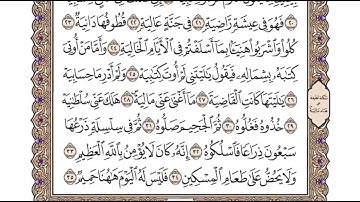 ٢٠ فَهُوَ فِي عِيشَةٍ رَّاضِيَةٍ ٢١ فِي جَنَّةٍ عَالِيَةٍ ٢٢ قُطُوفُهَا دَانِيَةٌ
٢٣ كُلُوا۟ وَٱشْرَبُوا۟ هَنِيٓـًٔۢا بِمَآ أَسْلَفْتُمْ فِي ٱلْأَيَّامِ ٱلْخَالِيَةِ ٢٤ وَأَمَّا مَنْ أُوتِيَ
كِتَٰبَهُۥ بِشِمَالِهِۦ فَيَقُولُ يَٰلَيْتَنِي لَمْ أُوتَ كِتَٰبِيَهْ ٢٥ وَلَمْ أَدْرِ مَا حِسَابِيَهْ
٢٦ يَٰلَيْتَهَا كَانَتِ ٱلْقَاضِيَةَ ٢٧ مَآ أَغْنَىٰ عَنِّي مَالِيَهْ ٢٨ هَلَكَ عَنِّي سُلْطَٰنِيَهْ
٢٩ خُذُوهُ فَغُلُّوهُ ٣٠ ثُمَّ ٱلْجَحِيمَ صَلُّوهُ ٣١ ثُمَّ فِي سِلْسِلَةٍ ذَرْعُهَا
سَبْعُونَ ذِرَاعًا فَٱسْلُكُوهُ ٣٢ إِنَّهُۥ كَانَ لَا يُؤْمِنُ بِٱللَّهِ ٱلْعَظِيمِ
٣٣ وَلَا يَحُضُّ عَلَىٰ طَعَامِ ٱلْمِسْكِينِ ٣٤ فَلَيْسَ لَهُ ٱلْيَوْمَ هَٰهُنَا حَمِيمٌ ٣٥